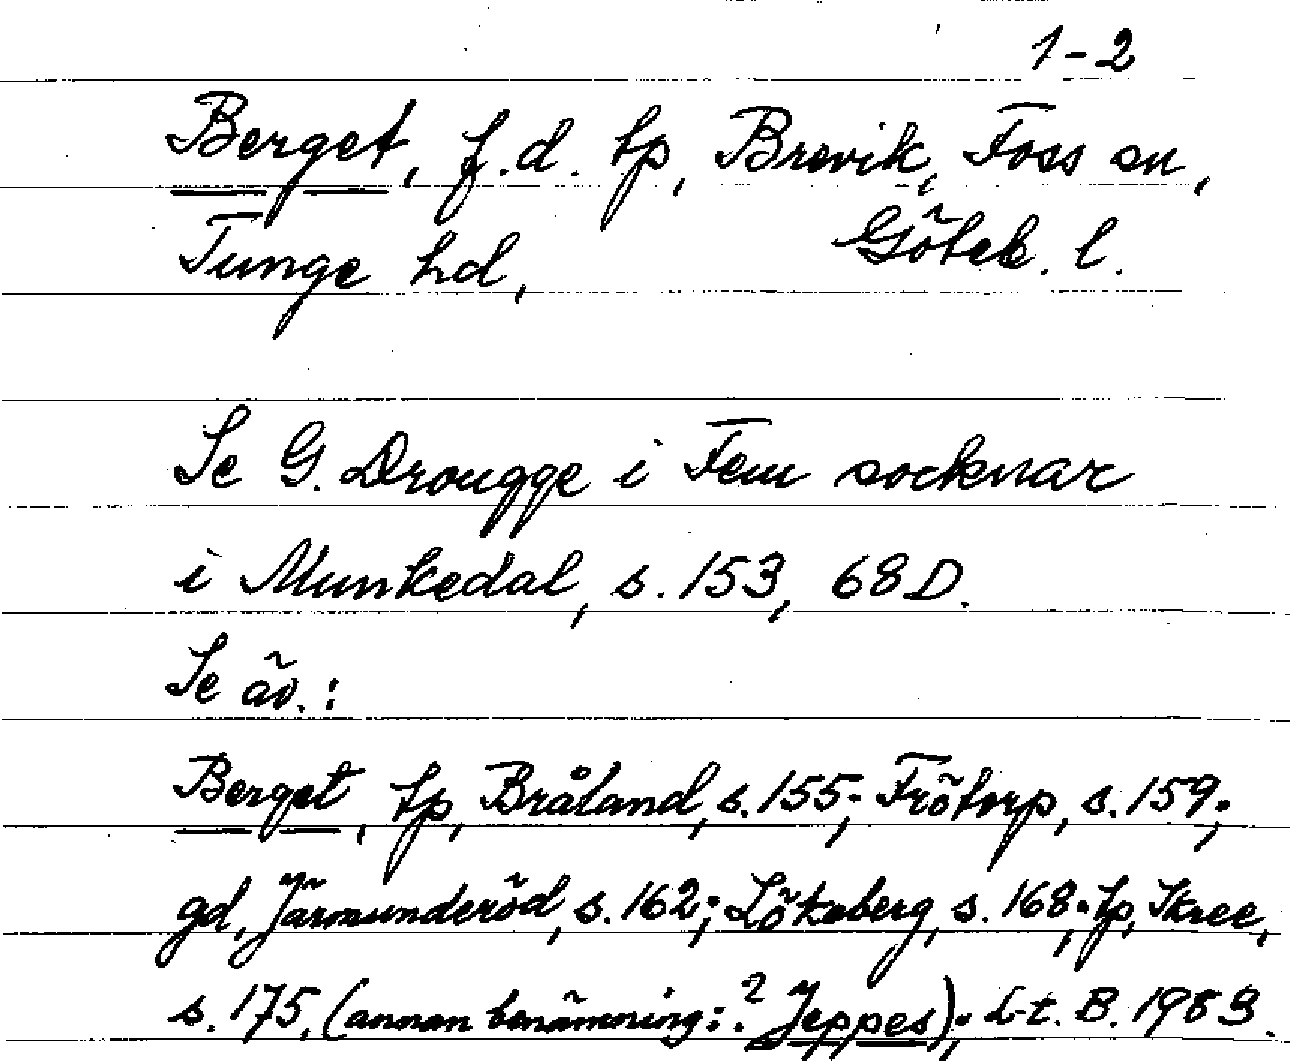 1-2
Berget, f.d. tp, Brevik, Foss sn,
Tunge hd, Göteb. l.
Se G. Drougge i Fem socknar
i Munkedal, s. 153, 68 D.
Se äv.:
Berget, tp, Bråland, s. 155; Frötorp, s. 159;
gd, Järmunderöd, s. 162; Lökeberg, s. 168; tp, Skree,
s. 175, (annan benämning: ? Jeppes); L-t. B. 1983.